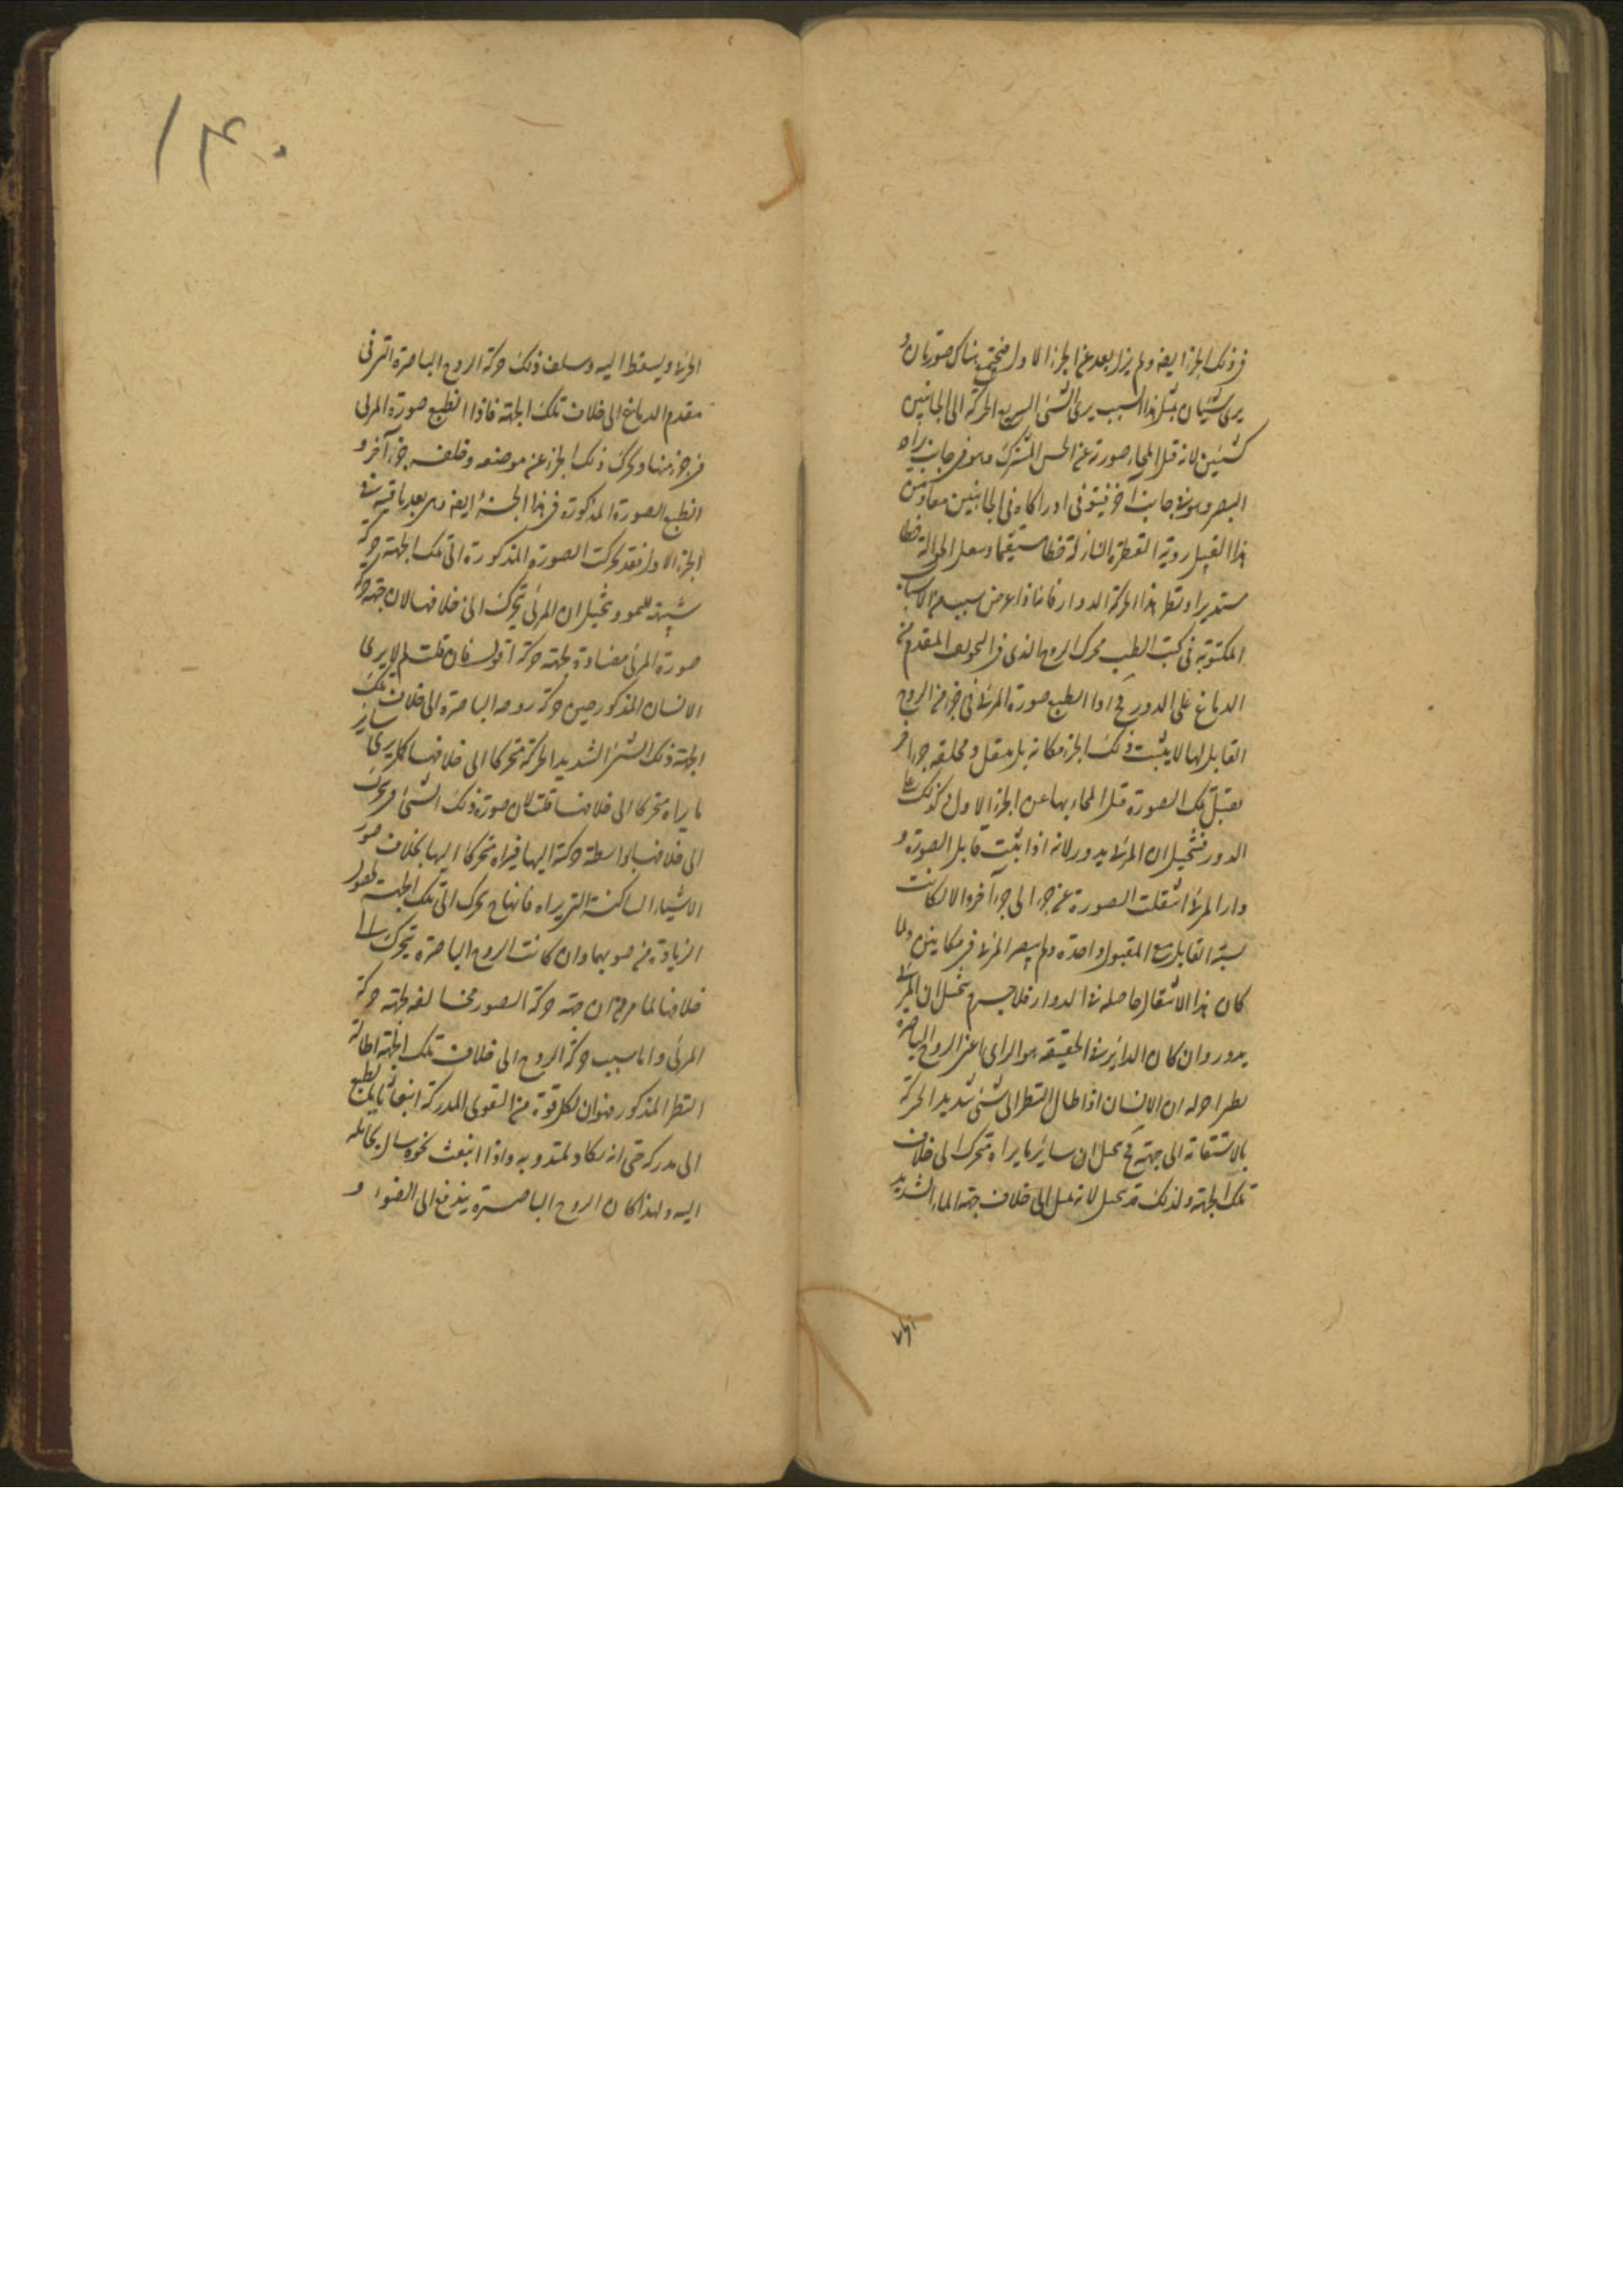 فى ذلك الجزء ايضه ولم يزل بعد عن الجزء الاول فيجتمع هناك صورتان و
يرى شيئان بمثل هذا السبب يرى الشئ السريع الحركة الى الجانبين
كشيئين لانه قبل انمحاء صورته عن الحس المشترك وهو فى جانب يراه
البصر وهو فى جانب آخر فيتوفى ادراكاه فى الجانبين معا ومن
هذا القبيل روية القطرة النازلة خطا مستقيما و الجوالة خطا
مستديرا ونظر هذا الحركة الدوار فانا اذا عرض سبب من الاسباب
المكتوبة فى كتب الطب محرك الروح الذى فى التجويف المقدم من
الدماغ على الدور فح اذا انطبع صورة المرئى فى جزء من الروح
القابل لها لا يثبت ذلك الجزء مكانه بل ينتقل و يخلفه جزء آخر
يقبل تلك الصورة قبل انمحائها عن الجزء الاول كذلك على
الدور فيتخيل ان المرئى يدور لانه اذا ثبت قابل الصورة و
دار المرئى انتقلت الصورة عن جزء الى جزء آخر والا لكانت
نسبة القابل مع المقبول واحدة ولم يبصر المرئى فى مكانين ولما
كان هذا الانتقال حاصله فى الدوار فلاجرم يتخيل ان المرئى
يدور وان كان الداير فى الحقيقه هو الرائى اعنى الروح الباصرة
ان الانسان اذا اطال النظر الى شئ شديد الحركة
بالاستقامة الى جهة فح يتخيل ان ساير ما يراه متحرك الى خلاف
تلك الجهة ولذلك قد يتخيل لانه يميل الى خلاف جهة الماء الشديد
اى٧
١٤٠
الجرى ويسقط اليه و ذلك حركة الروح الباصرة التى فى
مقدم الدماغ الى خلاف تلك الجهة فاذا انطبع صورة المرئى
فى جزء منها وتحرك ذلك الجزء عن موضعه وخلفه جزء آخر و
انطبع الصورة المذكورة فى هذا الجزء ايضه وهى بعد باقية فى
الجزء الاول فقد تحركت الصورة المذكورة الى تلك الجهة حركة
شبيهة و يتخيل ان المرئى يتحرك الى خلافها لان جهة حركة
صورة المرئى مضادة لجهة حركة اقول فان قلت لم لا يرى
الانسان المذكور حين حركة روحه الباصرة الى خلاف تلك
الجهة ذلك الشئ الشديد الحركة متحركا الى خلافها كما يرى ساير
ما يراه متحركا الى خلافها قلت لان صورة ذلك الشئ تحركت
الى خلافها بواسطة حركته اليها فيراه متحركا اليها بخلاف صور
الاشياء الساكنة التى يراه فانها تحرك الى تلك الجهة لحصول
الزيادة من صوبها وان كانت الروح الباصرة تتحرك الى
خلافها لما مر من ان جهة حركة الصور مخالفه لجهة حركة
المرئى واما سبب حركة الروح الى خلاف تلك الجهة اطالة
النظر المذكور فهو ان لكل قوة من القوى المدركة انبعاثا بالطبع
الى مدركه حتى انه يكاد يلتذ به واذا انبعث نحوه سال بحامله
اليه ولهذا كان الروح الباصرة يندفع الى الضوء و